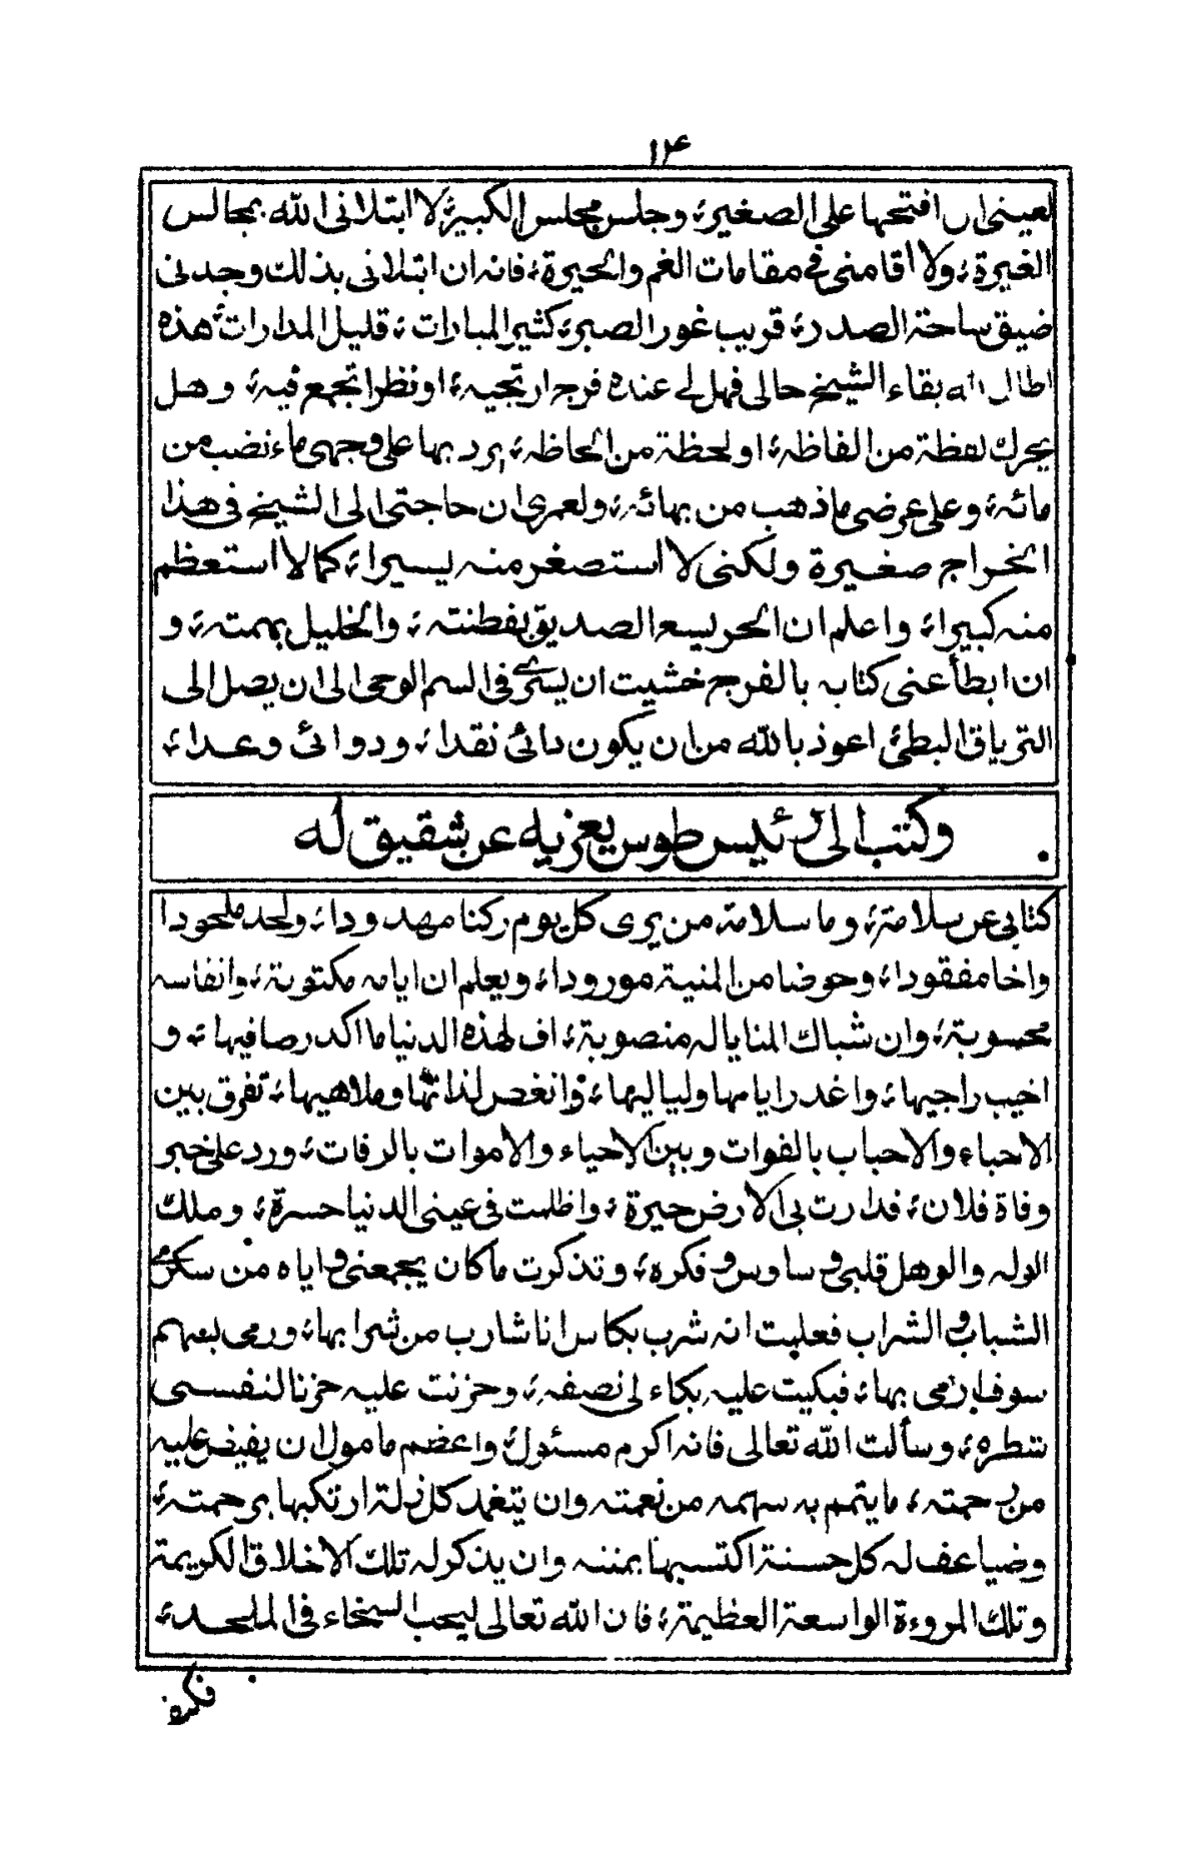 ١٤
لعينى ان افتحها على الصغير، وجلس مجلس الكبير، لا ابتلانى الله بمجالس
الغيرة، ولا اقامنى فى مقامات الغم والحيرة، فانه ان ابتلانى بذلك وجدنى
ضيق ساحة الصدر، قريب غور الصبر، كثير المبارات، قليل المدارات، هذه
اطال الله بقاء الشيخ حالى فهل لے عنده فرج ارتجيه، او نظر اتجمع فيه، وهل
يحرك لفظة من الفاظه، او لحظة من الحاظه، يرد بها على وجهى ماء نضب من
مائه، وعلى عرضى ما ذهب من بهائه، ولعمرى ان حاجتى الى الشيخ فى هذا
الخراج صغيرة ولكنى لا استصغر منه يسيرا، كما لا استعظم
منه كبيرا، واعلم ان الحر يسع الصديق بفطنته، والخليل بهمته، و
ان ابطأ عنى كتابه بالفرج خشيت ان يسرے فى السم الوحى الى ان يصل الى
الترياق البطئ، اعوذ بالله من ان يكون دائى نقدا، ودوائى وعدا،
وكتب الى رئيس طوس يعزيه عن شقيق له
كتابى عن سلامة، وما سلامة من يرى كل يوم ركنا مهدودا، ولحدا ملحودا
واخا مفقودا، وحوضا من المنية مورودا، ويعلم ان ايامه مكتوبة، وانفاسه
محسوبة، وان شباك المنايا له منصوبة، اف لهذه الدنيا ما اكدر صافيها، و
اخيب راجيها، واغدر ايامها ولياليها، وانغص لذاتها وملاهيها، تفرق بين
الاحباء والاحباب بالفوات وبين الاحياء والاموات بالرفات، ورد على خبر
وفاة فلان، فدارت بى الارض حيرة، واظلمت فى عينى الدنيا حسرة، وملك
الوله والوهل قلبى وساوس وفكره، وتذكرت ما كان يجمعنى واياه من سكرے
الشباب والشراب فعلمت انه شرب بكاس انا شارب من شرابها، ورمى بسهم
سوف ارمى بها، فبكيت عليه بكاء لى نصفه، وحزنت عليه حزنا لنفسى
شطره، وسألت الله تعالى فانه اكرم مسئول، واعضم مامول ان يفيض عليه
من رحمته، ما يتمم به سهمه من نعمته وان يتغمد كل زلة ارتكبها برحمته،
وضياعف له كل حسنة اكتسبها بمننه وان يذكر له تلك الاخلاق الكريمة
وتلك المروءة الواسعة العظيمة، فان الله تعالى ليحب السخاء فى الملحد،
فكيف